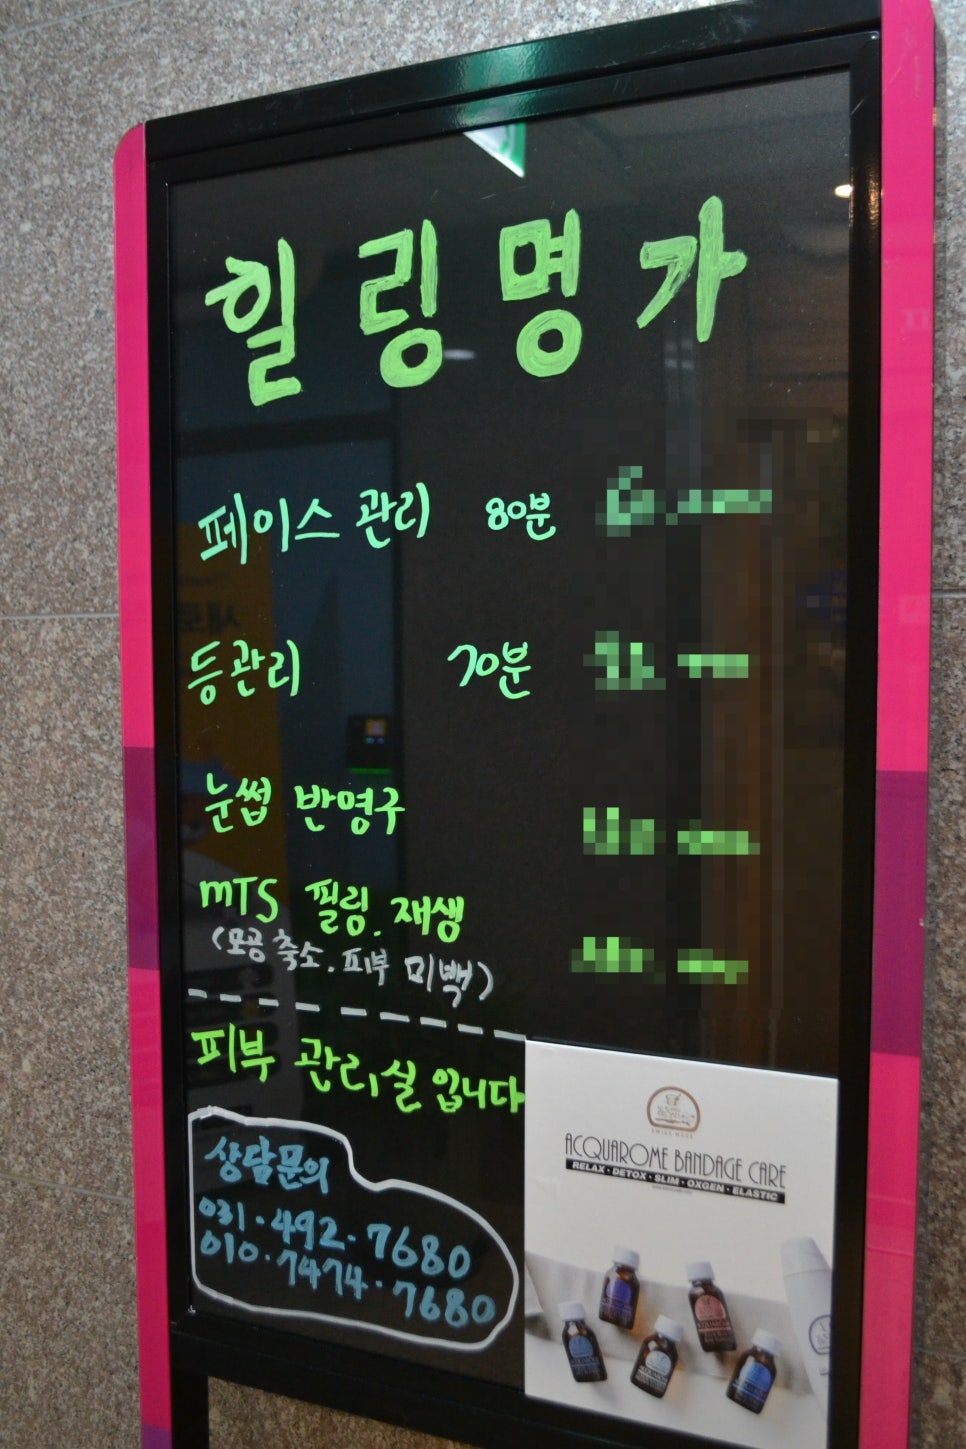 힐링명가
페이스 관리 80분
등관리 70분
눈썹 반영구
MTS 필링. 재생
(모공 축소. 피부 미백)
피부 관리실 입니다
상담문의
031·492·7680
010·7474·7680
ACQUAROME BANDAGE CARE
RELAX·DETOX·SLIM·OXGEN·ELASTIC